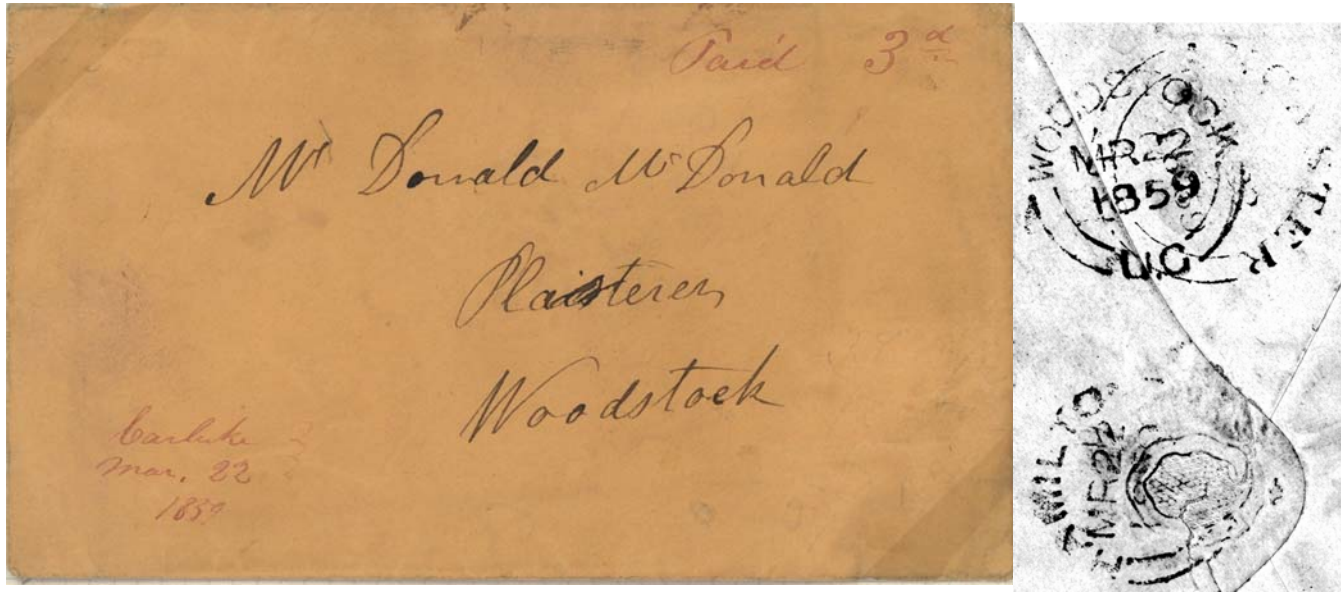 Paid 3d
Mr Donald McDonald
Plaisterer
Woodstock
Carluke
Mar. 22
1859
WOODSTOCK
MR 22
1859
U.C
STER
MILTO
MR 22